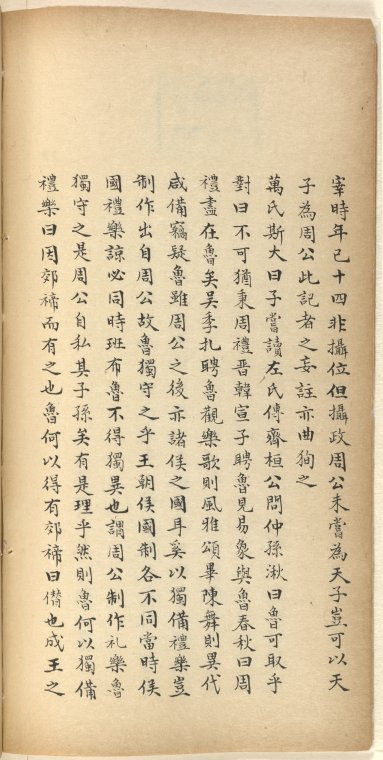 宰時年已十四非攝位但攝政周公未嘗為天子豈可以天
子為周公此記者之妄註亦曲狥之
萬氏斯大曰子嘗讀左氏傳齊桓公問仲孫湫曰魯可取乎
對曰不可猶秉周禮晉韓宣子聘魯見易象與魯春秋曰周
禮盡在魯矣吴季扎聘魯觀樂歌則風雅頌畢陳舞則異代
咸備竊疑魯雖周公之後亦諸侯之國耳奚以獨備禮樂豈
制作出自周公故魯獨守之乎王朝侯國制各不同當時侯
國禮樂諒必同時班布魯不得獨異也謂周公制作礼樂魯
獨守之是周公自私其子孫矣有是理乎然則魯何以獨備
禮樂曰因郊禘而有之也魯何以得有郊禘曰僣也成王之